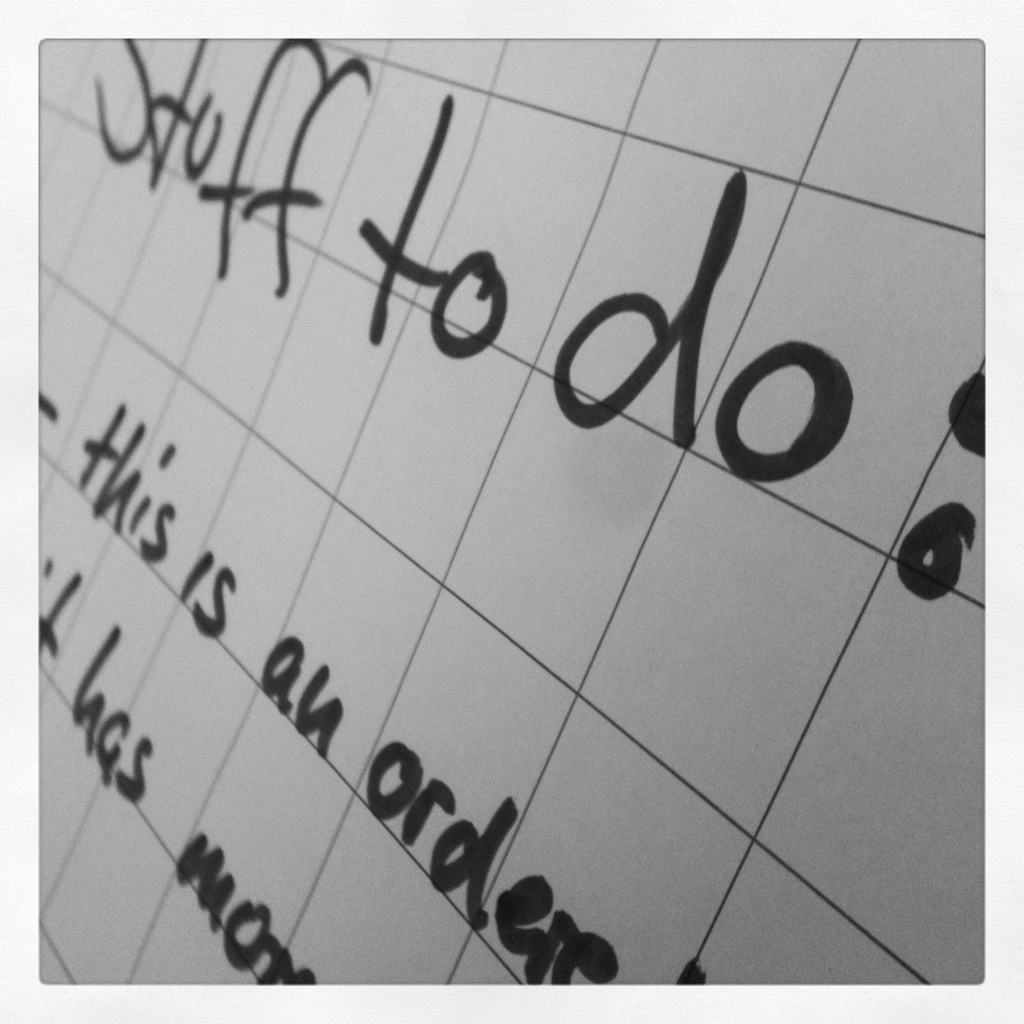 Stuff to do:
- this is an order
it has mor